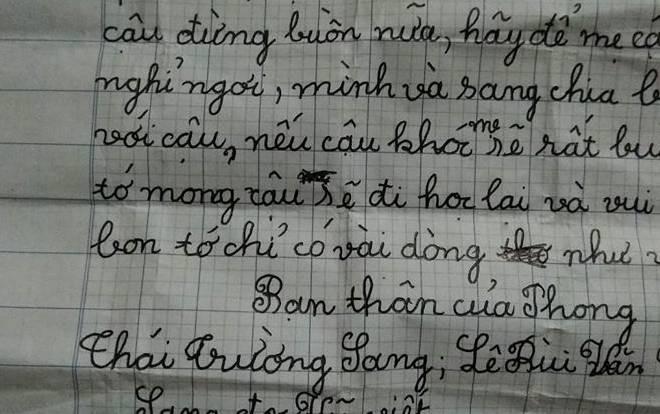 cậu đừng buồn nữa, hãy để mẹ cậ
nghỉ ngơi, mình và sang chia b
với cậu, nếu cậu khóc mẹ sẽ rất bu
tớ mong cậu sẽ đi học lại và vui
bọn tớ chỉ có vài dòng như v
Bạn thân của Phong
Thái Trường Sang; Lê Bùi Văn